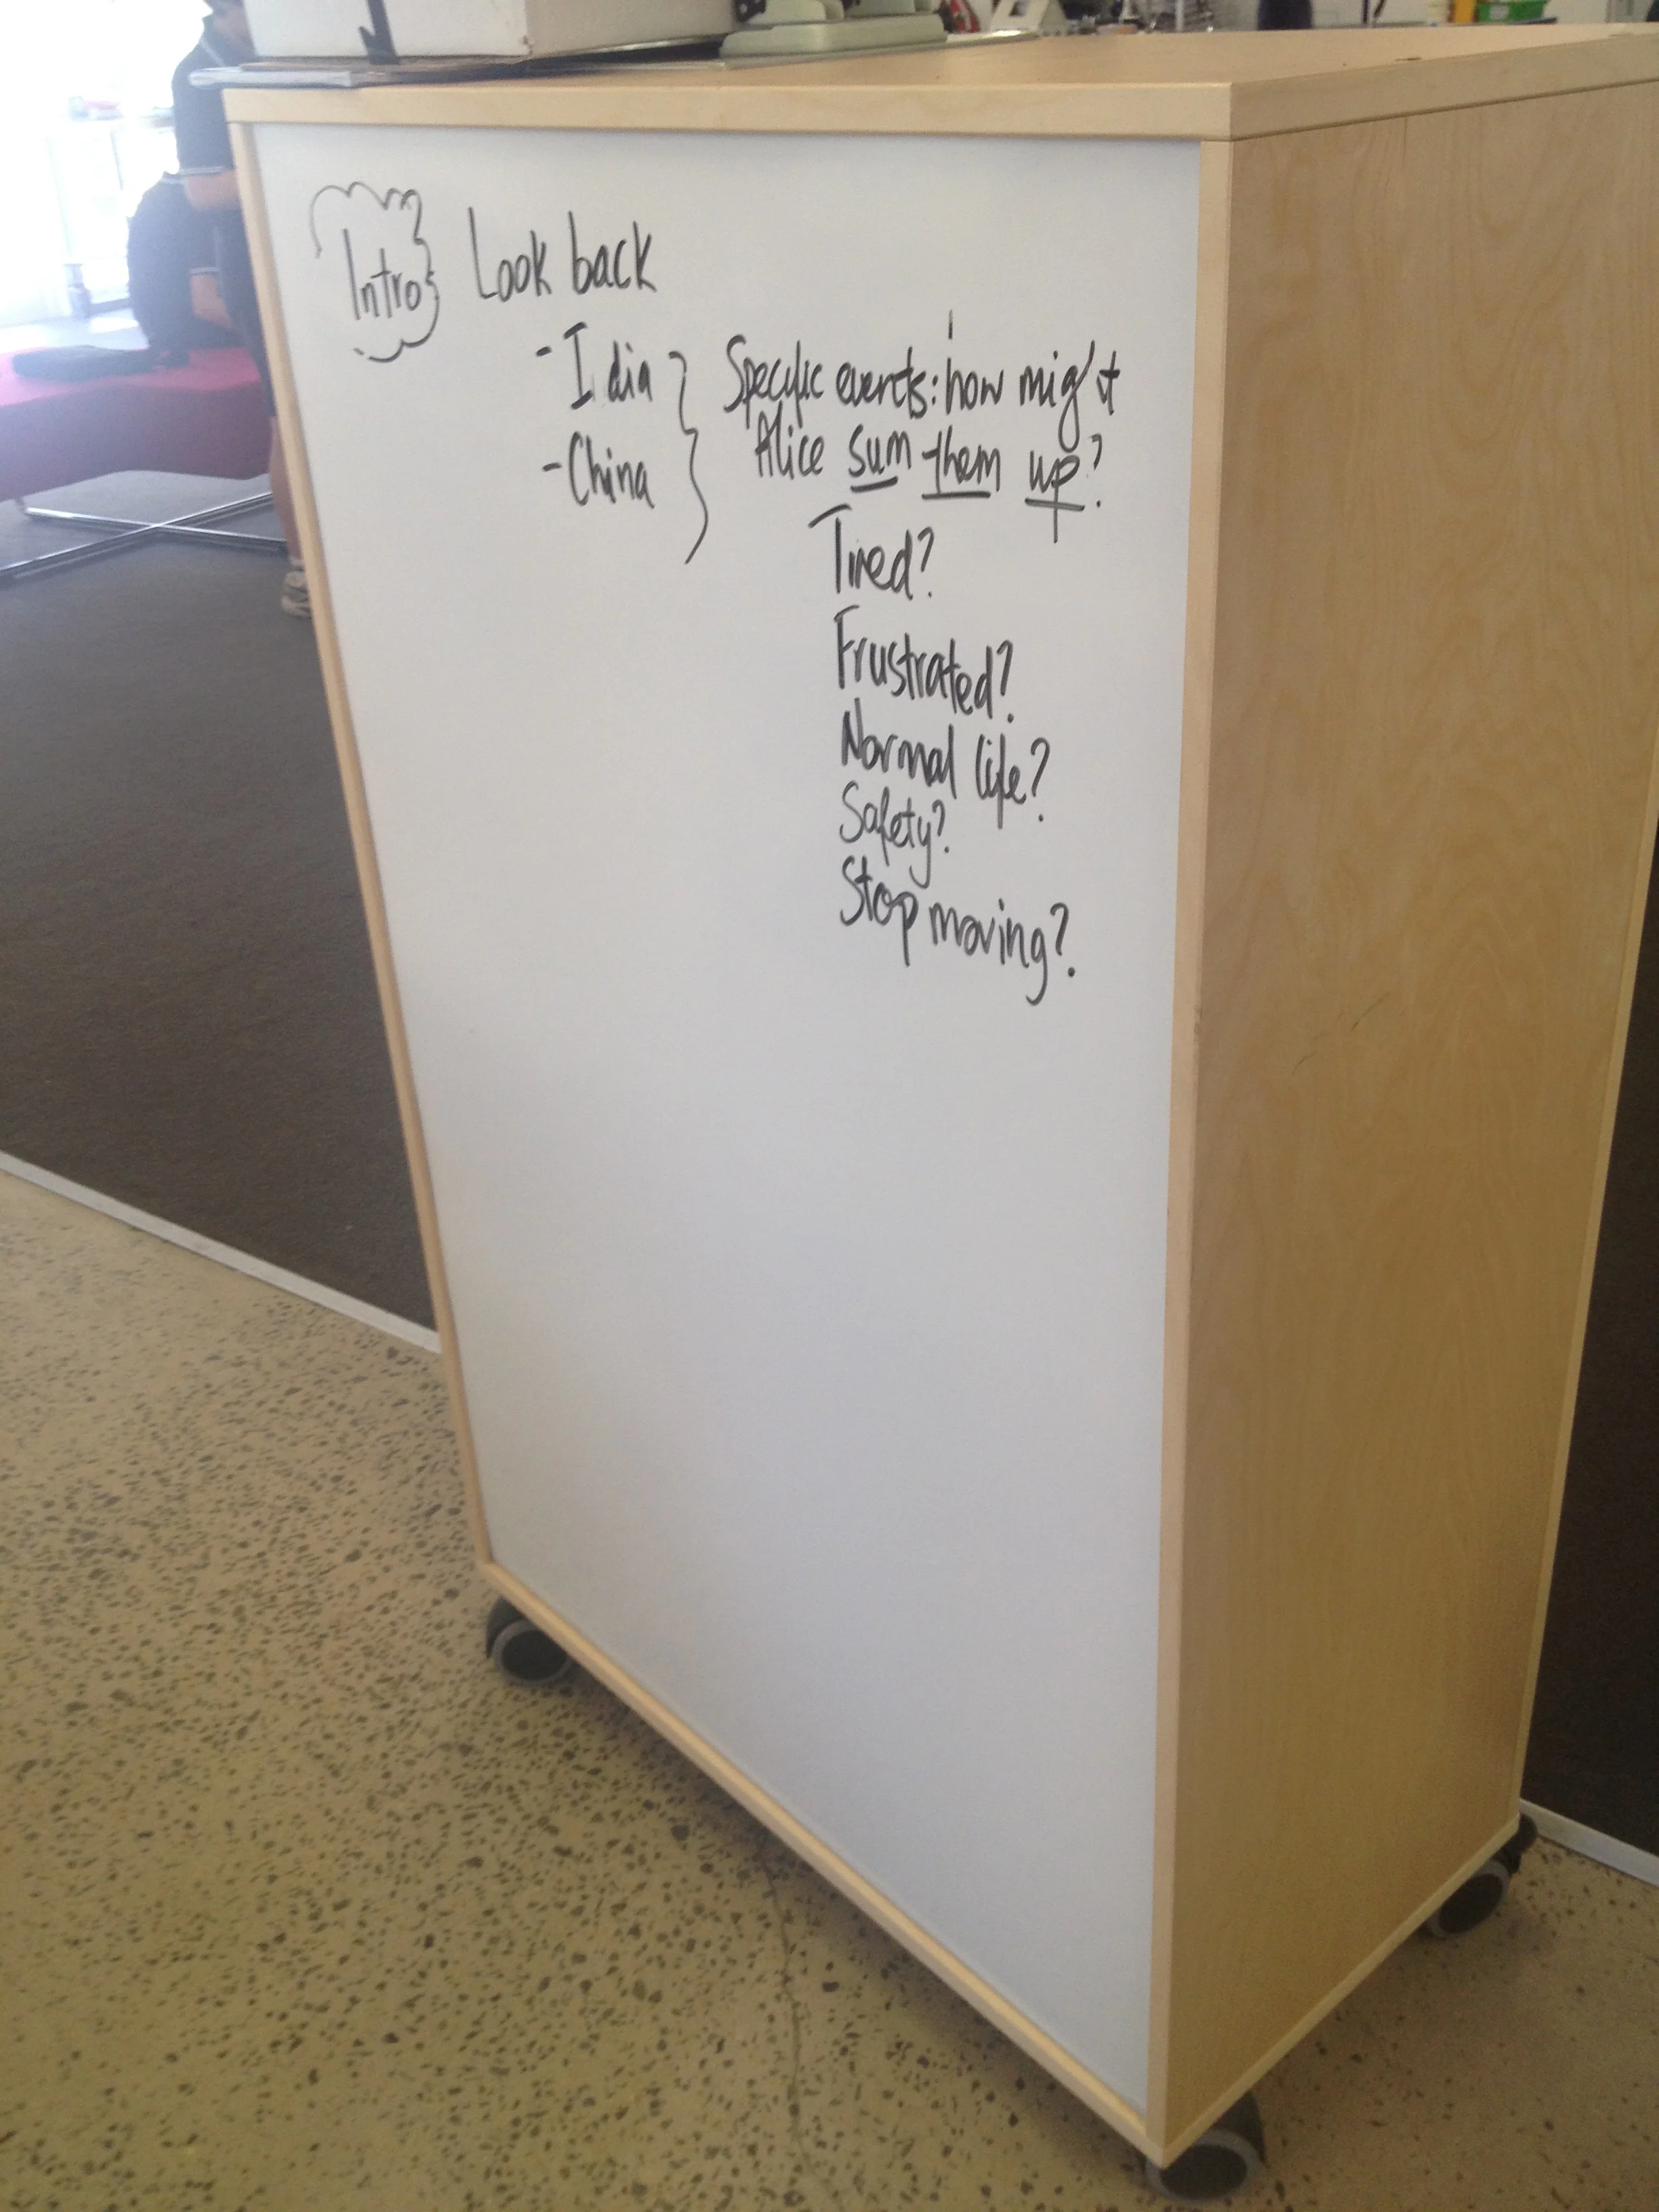 Intro Look back
- I dia
- China
Specific events: how might
Alice sum them up?
Tired?
Frustrated?
Normal life?
Safety?
Stop moving?